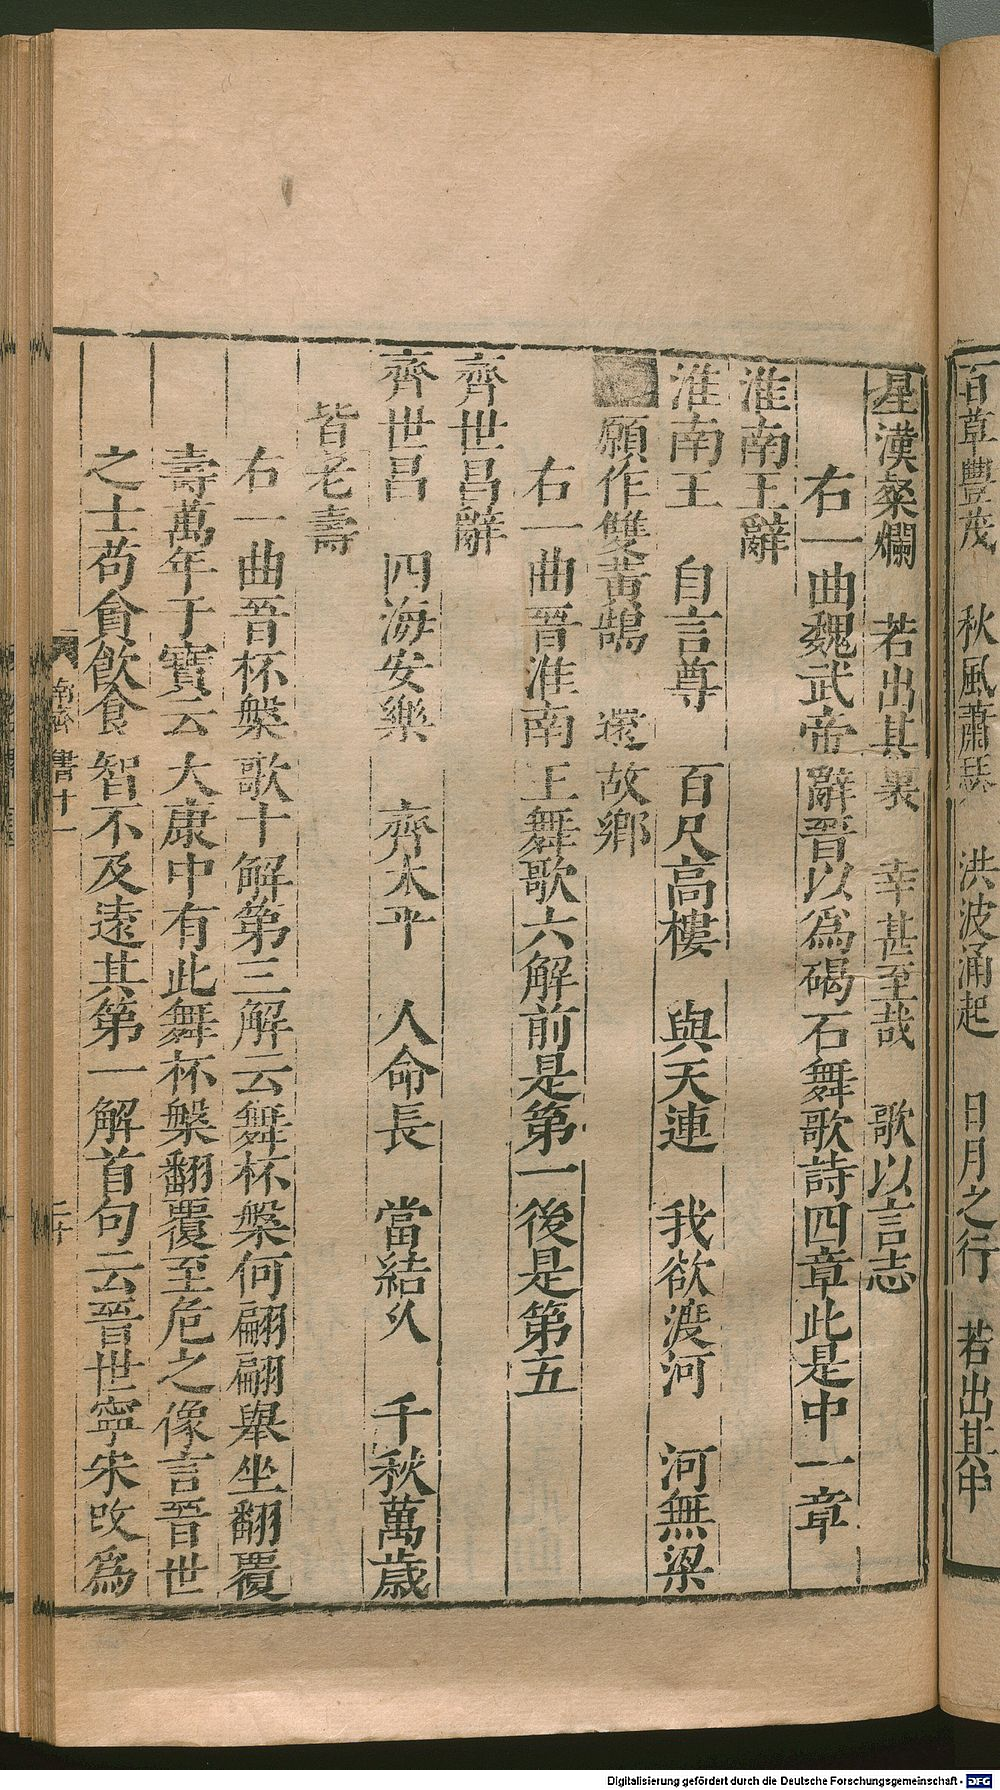 百草豐茂　秋風蕭瑟　洪波涌起　日月之行　若出其中
星漢粲爛　若出其裏　幸甚至哉　歌以言志
右一曲魏武帝辭晉以爲碣石舞歌詩四章此是中一章
淮南王辭
淮南王　自言尊　百尺高樓　與天連　我欲渡河　河無梁
願作雙黃鵠　還故鄉
右一曲晉淮南王舞歌六解前是第一後是第五
齊世昌辭
齊世昌　四海安樂　齊太平　人命長　當結乆　千秋萬歲
皆老壽
右一曲晉杯槃歌十解第三解云舞杯槃何翩翩舉坐翻覆
壽萬年于寶云大康中有此舞杯槃翻覆至危之像言晉世
之士苟貪飮食智不及遠其第一解首句云晉世寧宋改爲
南齊書十一
二十
Digitalisierung gefördert durch die Deutsche Forschungsgemeinschaft - DFG